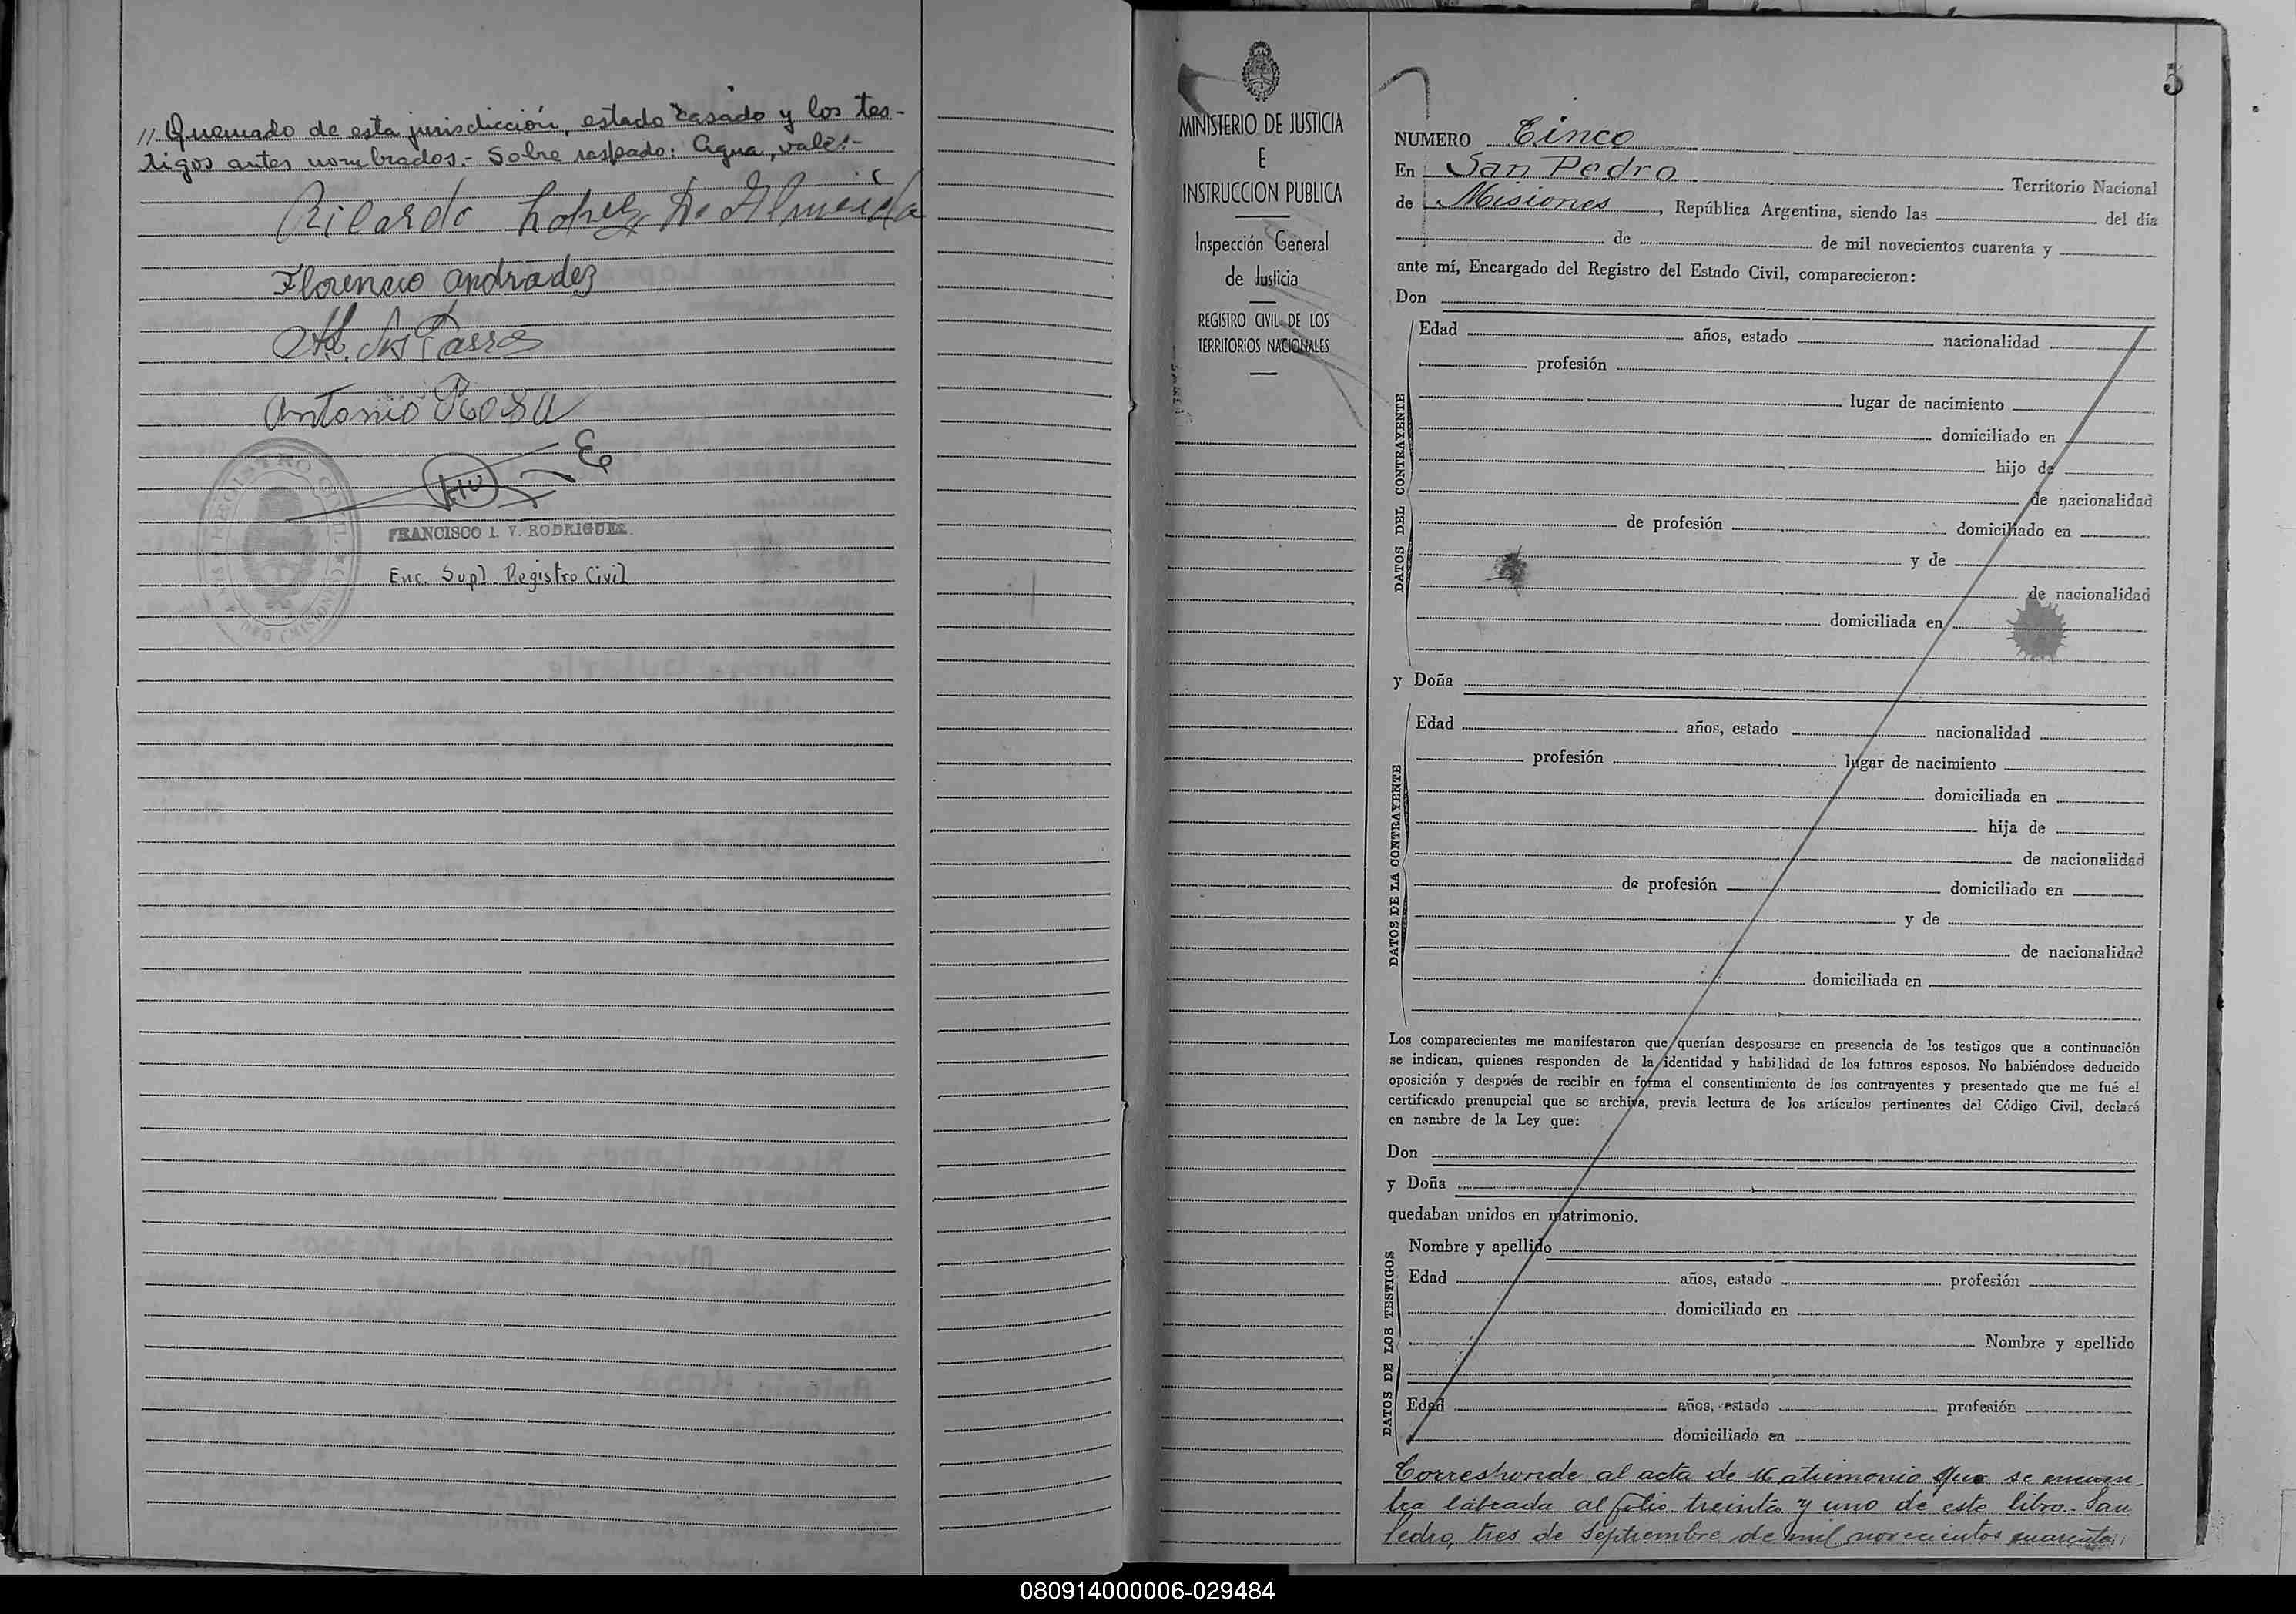 // Quemado de esta jurisdicción, estado casado y los tes-
tigos antes nombrados.- Sobre raspado: Agua, vale:-
Ricardo Lopez De Almeida
Florencio Andradez
dos Passos
Antonio Rosa
REGISTRO CIVIL
FRANCISCO I. V. RODRIGUEZ
Enc. Supl. Registro Civil
MINISTERIO DE JUSTICIA
E
INSTRUCCION PUBLICA
Inspección General
de Justicia
REGISTRO CIVIL DE LOS
TERRITORIOS NACIONALES
5
NUMERO Cinco
En San Pedro Territorio Nacional
de Misiones, República Argentina, siendo las del día
de de mil novecientos cuarenta y
ante mí, Encargado del Registro del Estado Civil, comparecieron:
Don
DATOS DEL CONTRAYENTE
Edad años, estado nacionalidad
profesión
lugar de nacimiento
domiciliado en
hijo de
de nacionalidad
de profesión domiciliado en
y de
de nacionalidad
domiciliada en
y Doña
DATOS DE LA CONTRAYENTE
Edad años, estado nacionalidad
profesión lugar de nacimiento
domiciliada en
hija de
de nacionalidad
de profesión domiciliado en
y de
de nacionalidad
domiciliada en
Los comparecientes me manifestaron que querían desposarse en presencia de los testigos que a continuación
se indican, quienes responden de la identidad y habilidad de los futuros esposos. No habiéndose deducido
oposición y después de recibir en forma el consentimiento de los contrayentes y presentado que me fué el
certificado prenupcial que se archiva, previa lectura de los artículos pertinentes del Código Civil, declaré
en nombre de la Ley que:
Don
y Doña
quedaban unidos en matrimonio.
DATOS DE LOS TESTIGOS
Nombre y apellido
Edad años, estado profesión
domiciliado en
Nombre y apellido
Edad años, estado profesión
domiciliado en
Corresponde al acta de Matrimonio que se encuen-
tra labrada al folio treinta y uno de este libro.- San
Pedro, tres de Septiembre de mil novecientos cuarenta//
080914000006-029484